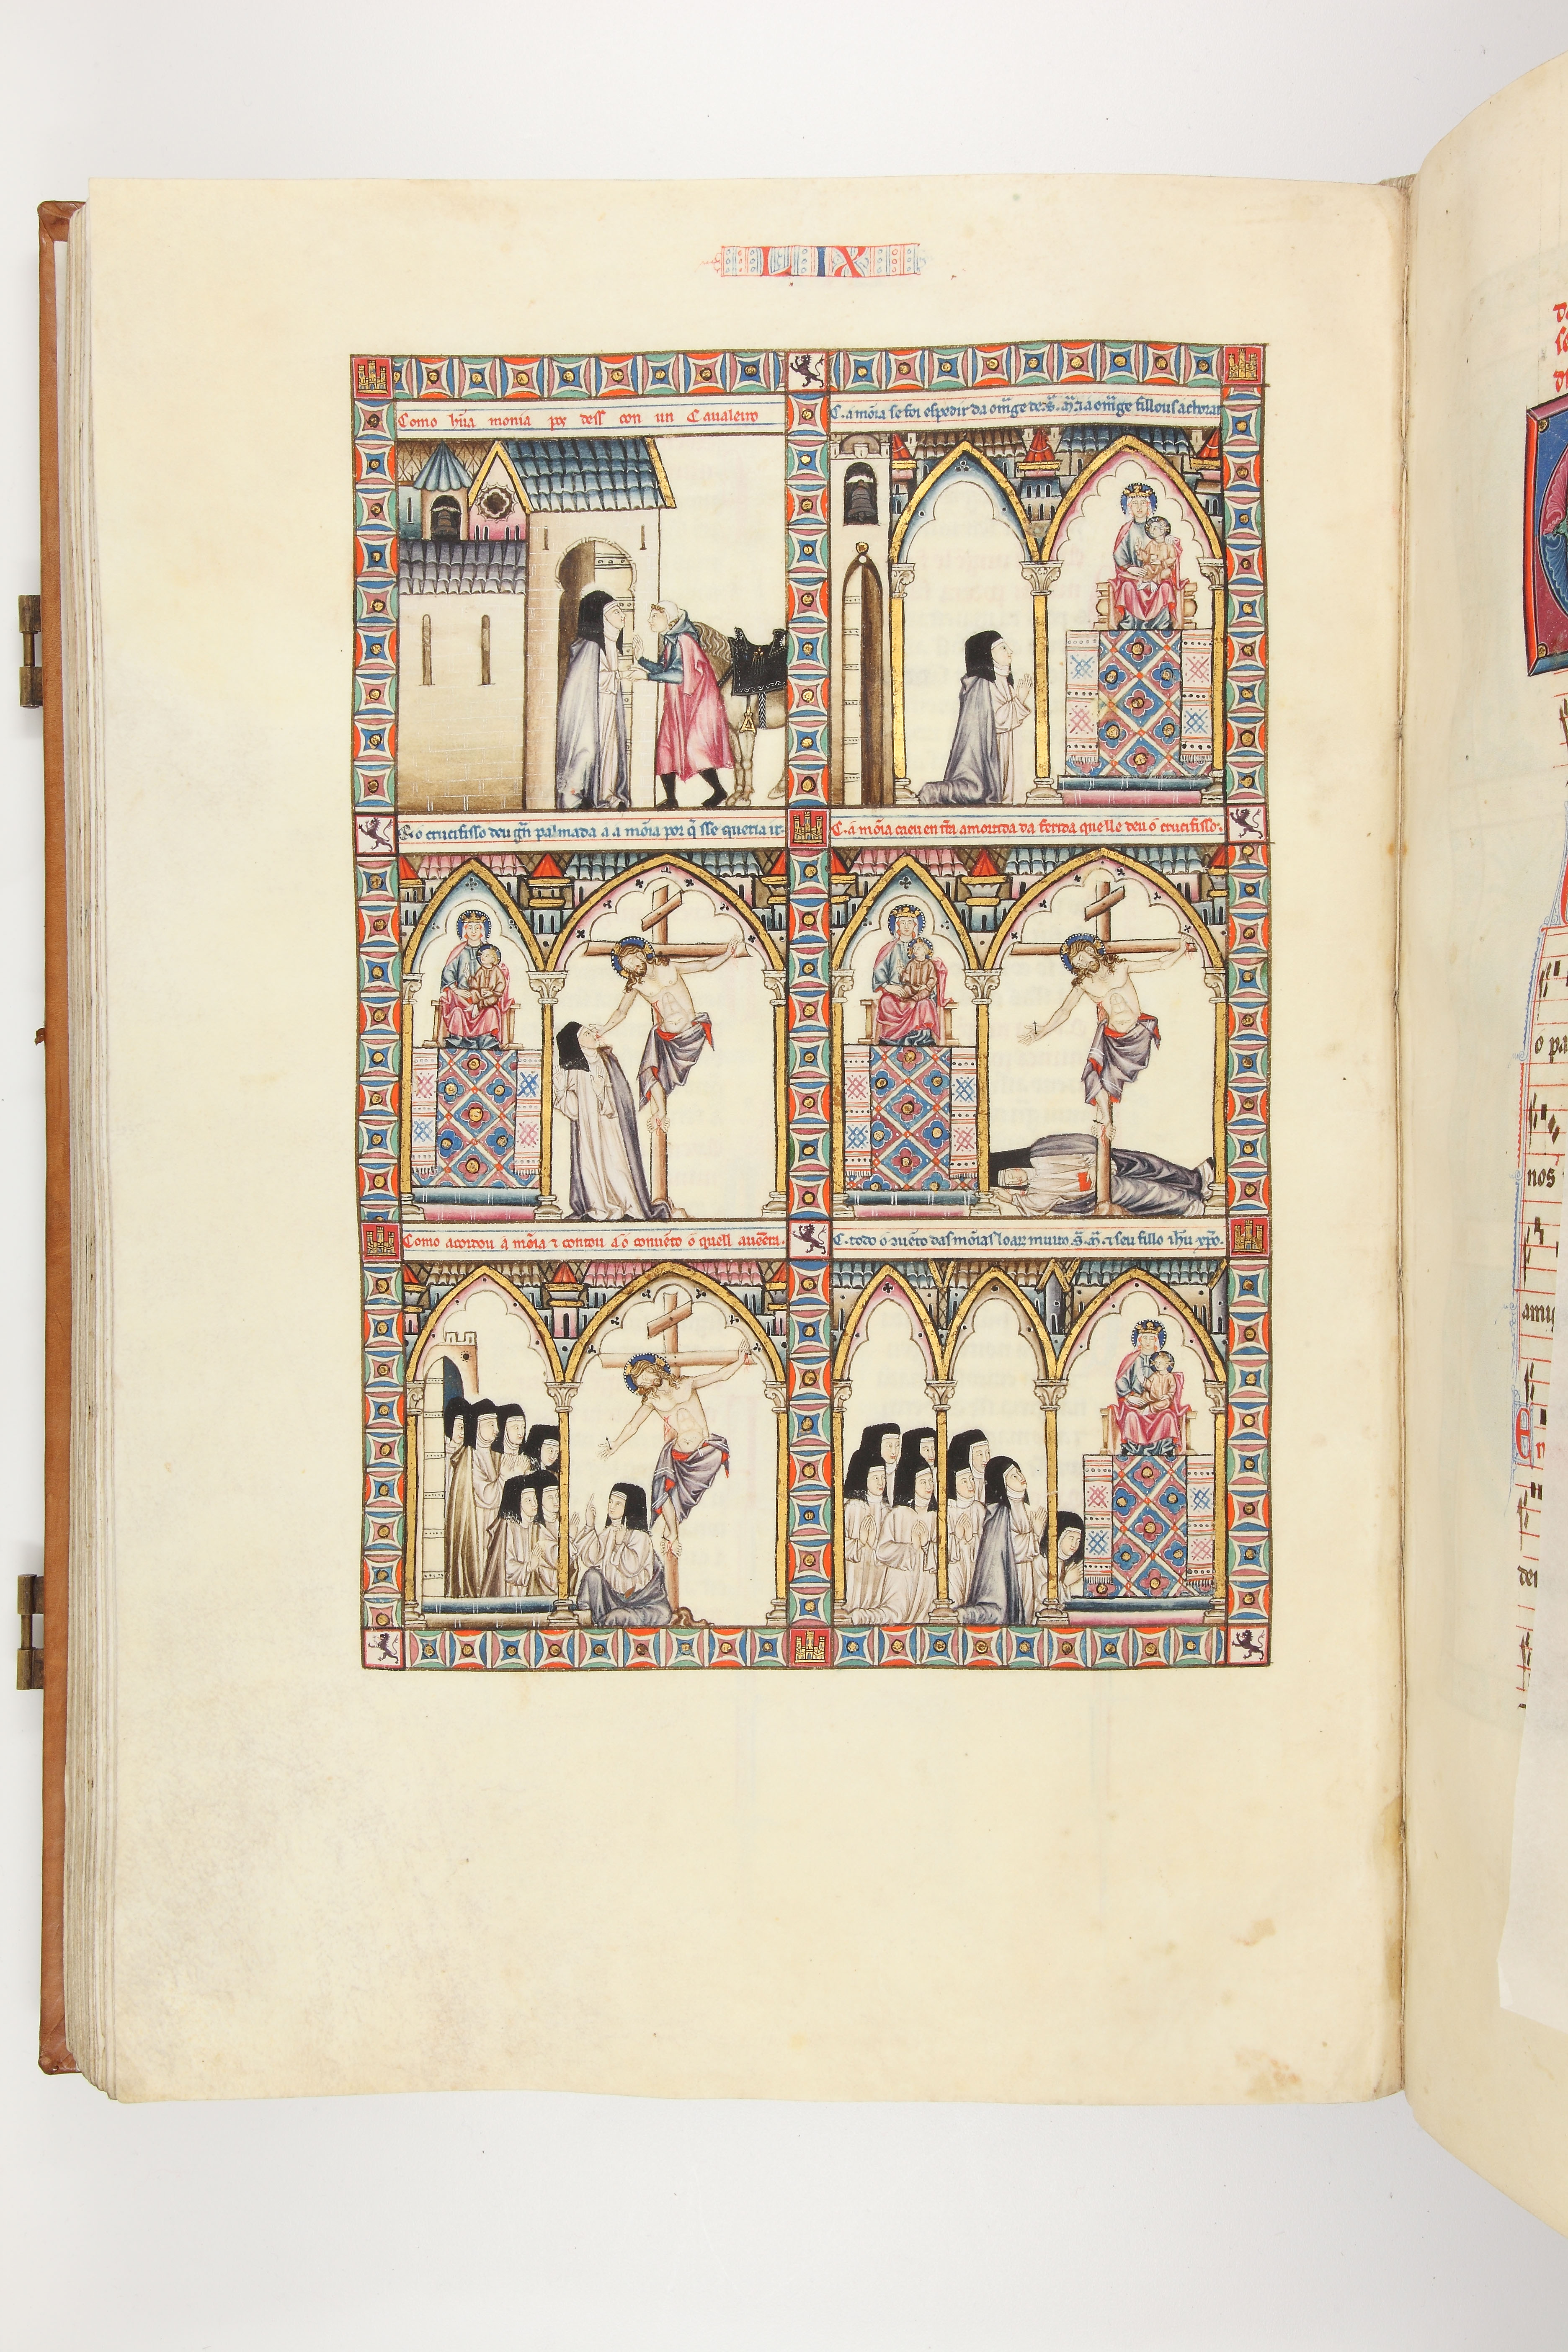 LIX
Como hũa monia pos dess con un Caualeiro
C. a mõia se foi espedir da omage de s. m. τ a omage fillous a chorar
C. o crucifisso deu grã palmada a a mõia por q̃ sse queria ir.
C. a mõia caeu en tr̃a amortida da ferida que lle deu o crucifisso.
Como acordou a mõia τ contou a o conuẽto o quell auẽera.
C. todo o ɔuẽto das mõias loarȝ muito s. m. τ seu fillo ihũ xp̃o.
o pa
nos
amy
dei